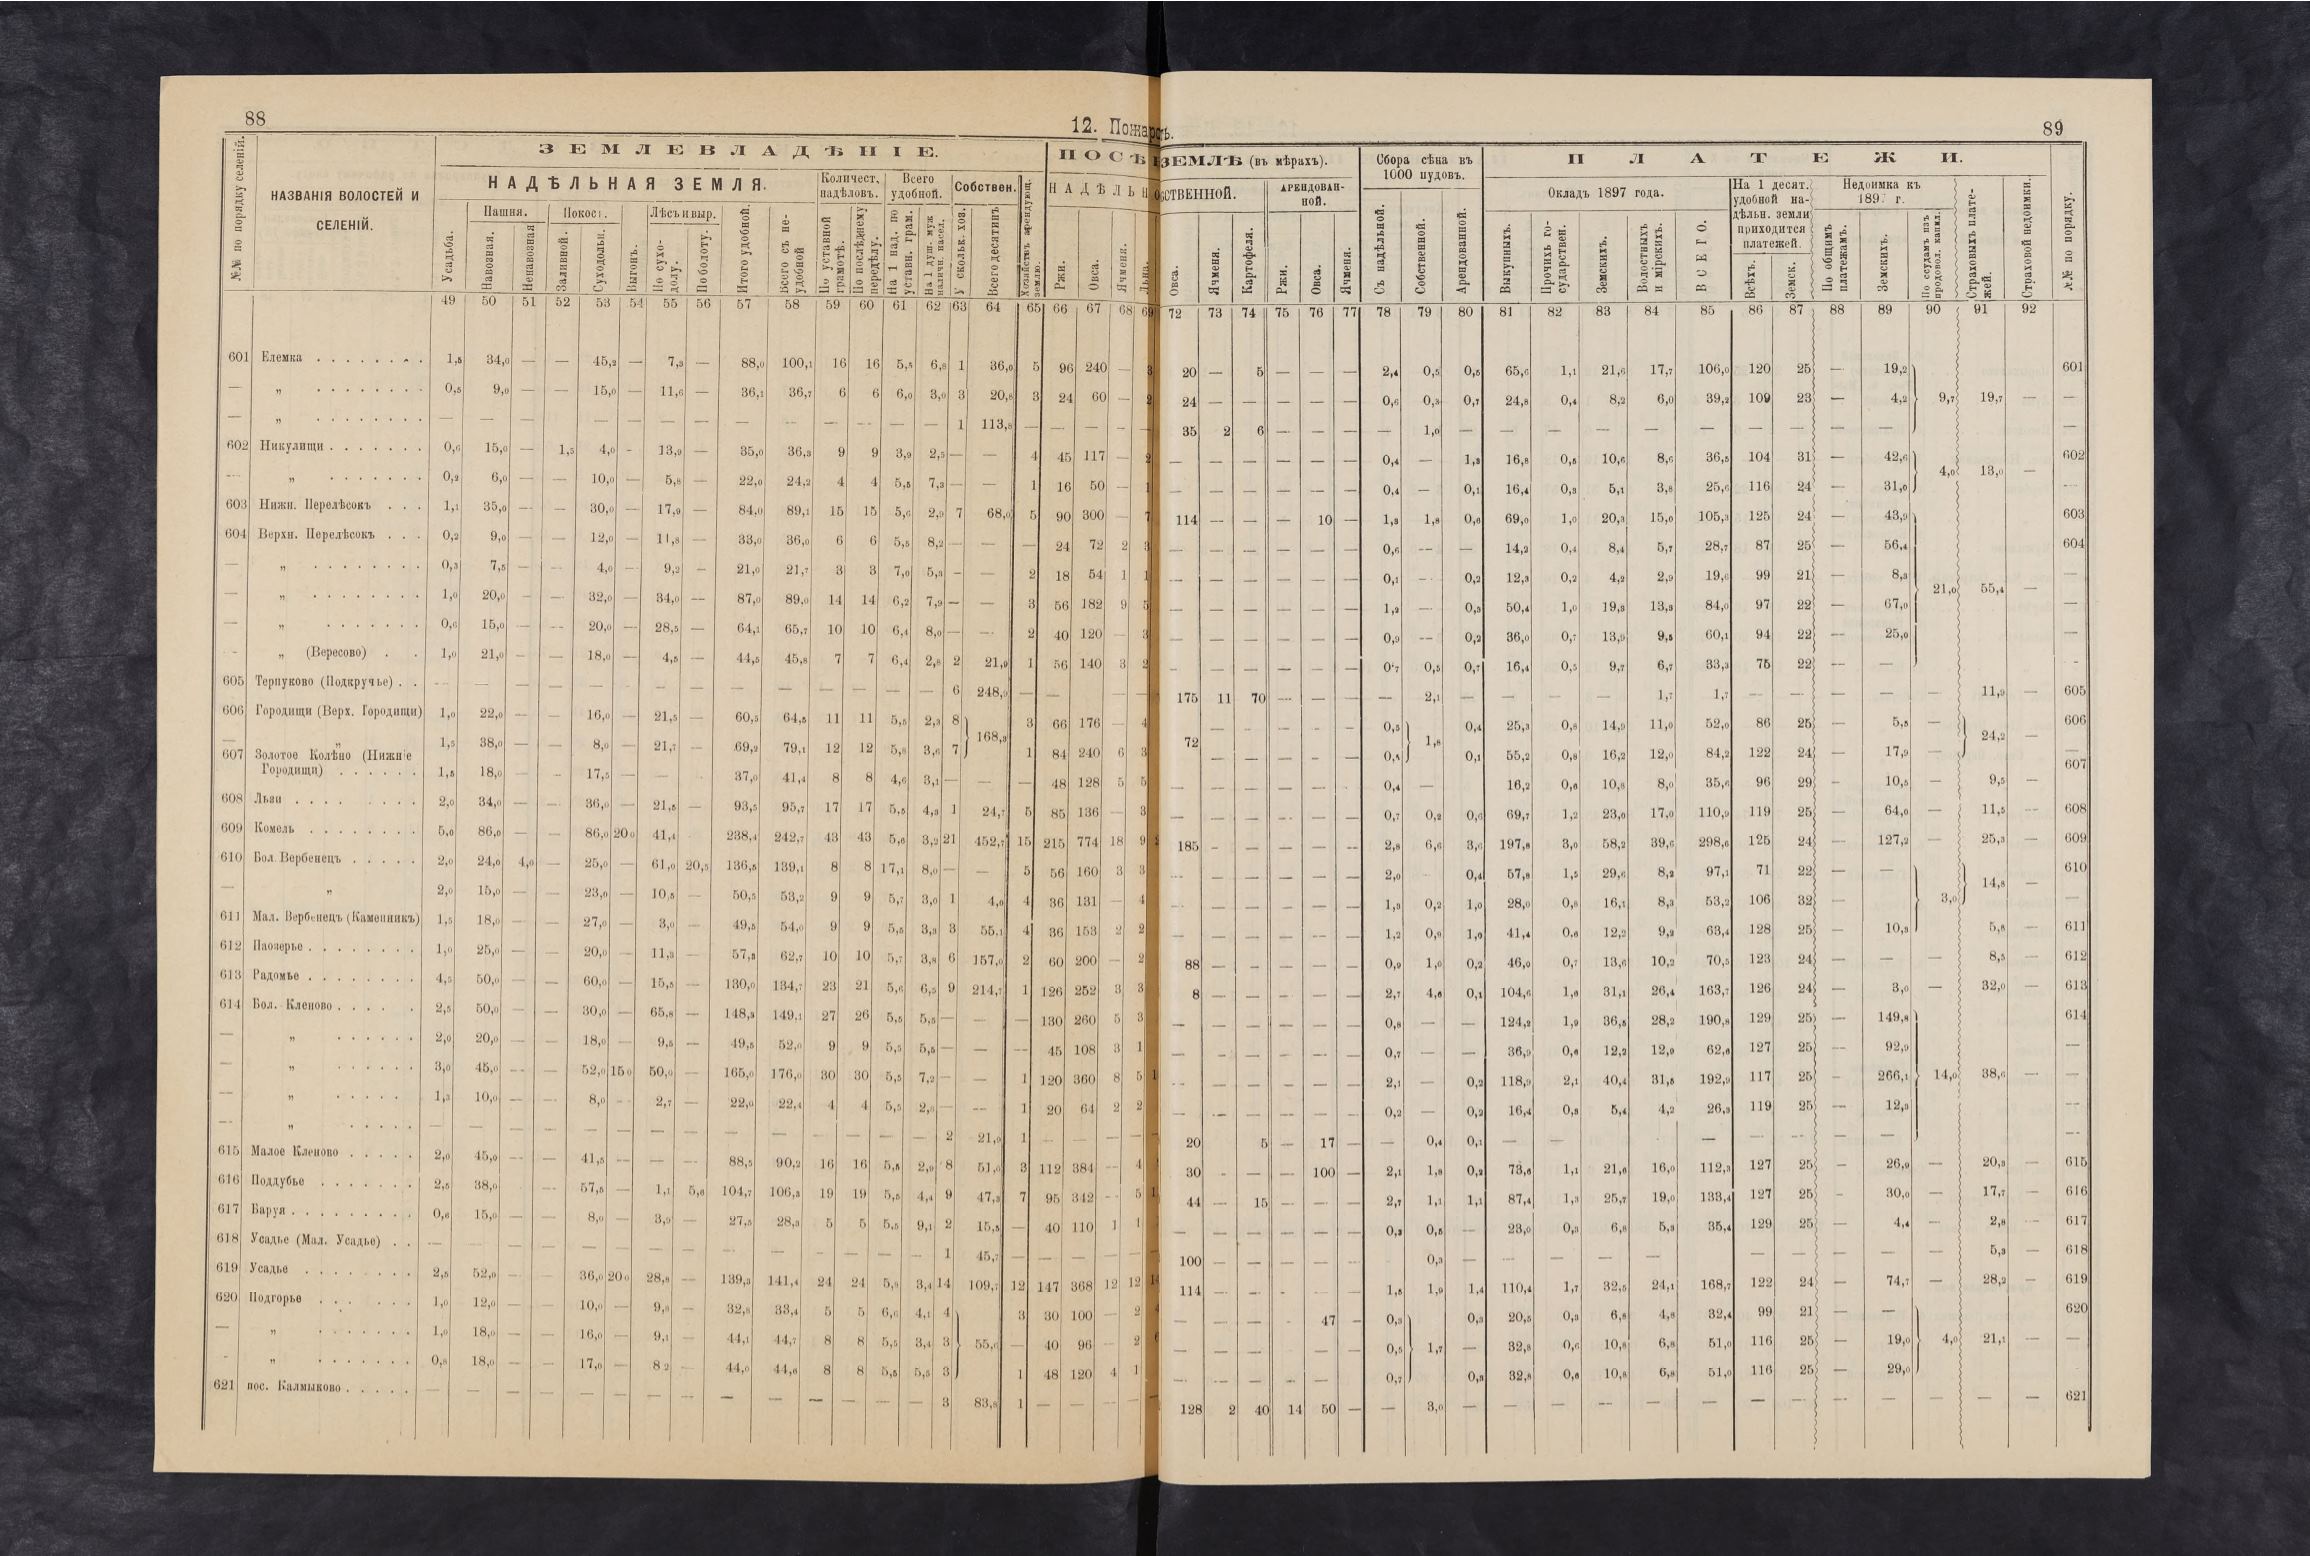 88
12. Пожарсть.
89
№№ по порядку селеній.
НАЗВАНІЯ ВОЛОСТЕЙ И
СЕЛЕНІЙ.
ЗЕМЛЕВЛАДѢНІЕ.
НАДѢЛЬНАЯ ЗЕМЛЯ.
Пашня.
Покосъ.
Лѣсъ и выр.
Усадьба.
Навозная.
Ненавозная
Заливной.
Суходольн.
Выгонъ.
По сухо-
долу.
По болоту.
Итого удобной.
Всего съ не-
удобной
Количест.
надѣловъ.
По уставной
грамотѣ.
По послѣднему
передѣлу.
Всего
удобной.
На 1 над. по
уставн. грам.
На 1 душ. муж
наличн. насел.
Собствен.
У скольк. хоз.
Всего десятинъ
Хозяйствъ арендующ.
землю.
ПОСѢ
НАДѢЛЬН
Ржи.
Овса.
Ячменя.
Льна.
ЗЕМЛѢ (въ мѣрахъ).
СТВЕННОЙ.
АРЕНДОВАН-
НОЙ.
Овса.
Ячменя.
Картофеля.
Ржи.
Овса.
Ячменя.
Сбора сѣна въ
1000 пудовъ.
Съ надѣльной.
Собственной.
Арендованной.
ПЛАТЕЖИ.
Окладъ 1897 года.
Выкупныхъ.
Прочихъ го-
сударствен.
Земскихъ.
Волостныхъ
и мірскихъ.
ВСЕГО.
На 1 десят.
удобной на-
дѣльн. земли
приходится
платежей.
Всѣхъ.
Земск.
Недоимка къ
189 г.
По общимъ
платежамъ.
Земскихъ.
По ссудамъ изъ
продовол. капил.
Страховыхъ плате-
жей.
Страховой недоимки.
№№ по порядку.
49 50 51 52 53 54 55 56 57 58 59 60 61 62 63 64 65 66 67 68 69
72 73 74 75 76 77 78 79 80 81 82 83 84 85 86 87 88 89 90 91 92
601 Елемка 1,5 34,0 — — 45,2 — 7,3 — 88,0 100,1 16 16 5,5 6,8 1 36,0 5 96 240 — 3 20 — 5 — — — 2,4 0,5 0,5 65,6 1,1 21,6 17,7 106,0 120 25 — 19,2 601
— „ 0,5 9,0 — — 15,0 — 11,6 — 36,1 36,7 6 6 6,0 3,0 3 20,8 3 24 60 — 2 24 — — — — — 0,6 0,3 0,7 24,8 0,4 8,2 6,0 39,2 109 23 — 4,2 9,7 19,7 — —
— „ — — — — — — — — — — — — — — 1 113,8 — — — — — 35 2 6 — — — — 1,0 — — — — — — — — — —
602 Никулищи 0,6 15,0 — 1,5 4,0 - 13,9 — 35,0 36,3 9 9 3,9 2,5 — — 4 45 117 — 2 — — — — — — 0,4 — 1,3 16,8 0,5 10,6 8,6 36,5 104 31 — 42,6 4,0 13,0 — 602
— „ 0,2 6,0 — — 10,0 — 5,8 — 22,0 24,2 4 4 5,5 7,3 — — 1 16 50 — 1 — — — — — — 0,4 — 0,1 16,4 0,3 5,1 3,8 25,6 116 24 — 31,0
603 Нижн. Перелѣсокъ 1,1 35,0 — — 30,0 — 17,9 — 84,0 89,1 15 15 5,6 2,9 7 68,0 5 90 300 — 7 114 — — — 10 — 1,3 1,8 0,6 69,0 1,0 20,3 15,0 105,3 125 24 — 43,9 603
604 Верхн. Перелѣсокъ 0,2 9,0 — — 12,0 — 11,8 — 33,0 36,0 6 6 5,5 8,2 — — — 24 72 2 3 — — — — — — 0,6 — — 14,2 0,4 8,4 5,7 28,7 87 25 — 56,4 604
— „ 0,3 7,5 — — 4,0 — 9,2 — 21,0 21,7 3 3 7,0 5,3 — — 2 18 54 1 1 — — — — — — 0,1 — 0,2 12,3 0,2 4,2 2,9 19,6 99 21 — 8,3 —
— „ 1,0 20,0 — — 32,0 — 34,0 — 87,0 89,0 14 14 6,2 7,9 — — 3 56 182 9 5 — — — — — — 1,2 — 0,3 50,4 1,0 19,3 13,3 84,0 97 22 — 67,0 21,0 55,4 — —
— „ 0,6 15,0 — — 20,0 — 28,5 — 64,1 65,7 10 10 6,4 8,0 — — 2 40 120 — 3 — — — — — — 0,9 — 0,2 36,0 0,7 13,9 9,5 60,1 94 22 — 25,0 —
— „ (Вересово) 1,0 21,0 — — 18,0 — 4,5 — 44,5 45,8 7 7 6,4 2,8 2 21,9 1 56 140 3 2 — — — — — — 0,7 0,5 0,7 16,4 0,5 9,7 6,7 33,3 75 22 — —
605 Терпуково (Подкручье) — — — — — — — — — — — — — — 6 248,9 — — — — 175 11 70 — — — — 2,1 — — — — 1,7 1,7 — — — — — 11,9 — 605
606 Городищи (Верх. Городищи) 1,0 22,0 — — 16,0 — 21,5 — 60,5 64,5 11 11 5,5 2,3 8 3 66 176 — 4 — — — — — 0,5 0,4 25,3 0,8 14,9 11,0 52,0 86 25 — 5,5 — 606
— „ 1,5 38,0 — — 8,0 — 21,7 — 69,2 79,1 12 12 5,8 3,6 7 168,3 1 84 240 6 3 72 — — — — — 0,5 1,8 0,1 55,2 0,8 16,2 12,0 84,2 122 24 — 17,9 — 24,2 — —
607 Золотое Колѣно (Нижніе
Городищи) 1,5 18,0 — - 17,5 — — 37,0 41,4 8 8 4,6 3,1 — — — 48 128 5 5 — — — — — — 0,4 — 16,2 0,6 10,8 8,0 35,6 96 29 — 10,5 — 9,5 — 607
608 Льзи 2,0 34,0 — — 36,0 — 21,5 — 93,5 95,7 17 17 5,5 4,3 1 24,7 5 85 136 — 3 — — — — — — 0,7 0,2 0,6 69,7 1,2 23,0 17,0 110,9 119 25 — 64,0 — 11,5 — 608
609 Комель 5,0 86,0 — — 86,0 20,0 41,4 238,4 242,7 43 43 5,6 3,2 21 452,7 15 215 774 18 9 185 — — — — — 2,8 6,6 3,6 197,8 3,0 58,2 39,6 298,6 125 24 — 127,2 — 25,3 — 609
610 Бол. Вербенецъ 2,0 24,0 4,0 — 25,0 — 61,0 20,5 136,5 139,1 8 8 17,1 8,0 — — 5 56 160 3 3 — — — — — — 2,0 0,4 57,8 1,5 29,6 8,2 97,1 71 22 — — 610
— „ 2,0 15,0 — — 23,0 — 10,5 — 50,5 53,2 9 9 5,7 3,0 1 4,0 4 36 131 — 4 — — — — — — 1,3 0,2 1,0 28,0 0,8 16,1 8,3 53,2 106 32 — — 3,0 14,8 — —
611 Мал. Вербенецъ (Каменникъ) 1,5 18,0 — — 27,0 — 3,0 — 49,5 54,0 9 9 5,5 3,3 3 55,1 4 36 153 2 2 — — — — — — 1,2 0,9 1,0 41,4 0,6 12,2 9,2 63,4 128 25 — 10,3 5,6 — 611
612 Паозерье 1,0 25,0 — — 20,0 — 11,3 — 57,3 62,7 10 10 5,7 3,8 6 157,0 2 60 200 — 2 88 — — — — — 0,9 1,0 0,2 46,0 0,7 13,6 10,2 70,5 123 24 — — — 8,5 — 612
613 Радомье 4,5 50,0 — — 60,0 — 15,5 — 130,0 134,7 23 21 5,6 6,5 9 214,7 1 126 252 3 3 8 — — — — — 2,7 4,6 0,1 104,6 1,6 31,1 26,4 163,7 126 24 — 3,0 — 32,0 — 613
614 Бол. Кленово 2,5 50,0 — — 30,0 — 65,8 — 148,3 149,1 27 26 5,5 5,5 — — — 130 260 5 3 — — — — — — 0,8 — — 124,2 1,9 36,5 28,2 190,8 129 25 — 149,8 614
— „ 2,0 20,0 — — 18,0 — 9,5 — 49,5 52,0 9 9 5,5 5,5 — — — 45 108 3 1 — — — — — — 0,7 — — 36,9 0,6 12,2 12,9 62,6 127 25 — 92,9 —
— „ 3,0 45,0 — — 52,0 15,0 50,0 — 165,0 176,0 30 30 5,5 7,2 — — 1 120 360 8 5 — — — — — — 2,1 — 0,2 118,9 2,1 40,4 31,5 192,9 117 25 — 266,1 14,0 38,6 — —
— „ 1,3 10,0 — — 8,0 — 2,7 — 22,0 22,4 4 4 5,5 2,6 — — 1 20 64 2 2 — — — — — — 0,2 — 0,2 16,4 0,3 5,4 4,2 26,3 119 25 — 12,3 —
— „ — — — — — — — — — — — — — — 2 21,9 1 — — — — 20 5 — 17 — — 0,4 0,1 — — — — — — —
615 Малое Кленово 2,0 45,0 — — 41,5 — — — 88,5 90,2 16 16 5,5 2,9 8 51,0 3 112 384 — 4 30 - — — 100 — 2,1 1,8 0,2 73,6 1,1 21,6 16,0 112,3 127 25 — 26,9 — 20,3 — 615
616 Поддубье 2,5 38,0 — 57,5 — 1,1 5,6 104,7 106,3 19 19 5,5 4,4 9 47,3 7 95 342 — 5 44 — 15 — — — 2,7 1,1 1,1 87,4 1,3 25,7 19,0 133,4 127 25 - 30,0 - 17,7 — 616
617 Варуя 0,6 15,0 — — 8,0 — 3,9 — 27,5 28,3 5 5 5,5 9,1 2 15,5 — 40 110 1 1 — — — — — — 0,3 0,5 — 23,0 0,3 6,8 5,3 35,4 129 25 — 4,4 — 2,8 — 617
618 Усадье (Мал. Усадье) — — — — — — — — — — — — — — 1 45,7 — — — — — 100 — — — — — 0,3 — — — — — — — — — — 5,3 — 618
619 Усадье 2,5 52,0 — — 36,0 20,0 28,8 — 139,3 141,4 24 24 5,8 3,4 14 109,7 12 147 368 12 12 114 — — — — — 1,5 1,9 1,4 110,4 1,7 32,5 24,1 168,7 122 24 — 74,7 — 28,2 — 619
620 Подгорье 1,0 12,0 — — 10,0 — 9,8 — 32,8 33,4 5 5 6,6 4,1 4 3 30 100 — 2 — — — - 47 — 0,3 0,3 20,5 0,3 6,8 4,8 32,4 99 21 — — 620
— „ 1,0 18,0 — — 16,0 — 9,1 — 44,1 44,7 8 8 5,5 3,4 3 55,6 — 40 96 — 2 — — — — — — 0,5 1,7 — 32,8 0,6 10,8 6,8 51,0 116 25 — 19,0 4,0 21,1 — —
- „ 0,8 18,0 — — 17,0 — 8,2 — 44,0 44,6 8 8 5,5 5,5 3 1 48 120 4 1 — — — — — — 0,7 0,3 32,8 0,6 10,8 6,8 51,0 116 25 — 29,0
621 пос. Калмыково — — — — — — — — — — — — — — 3 83,8 1 — — — — 128 2 40 14 50 — — 3,0 — — — — — — — — — — — — — 621